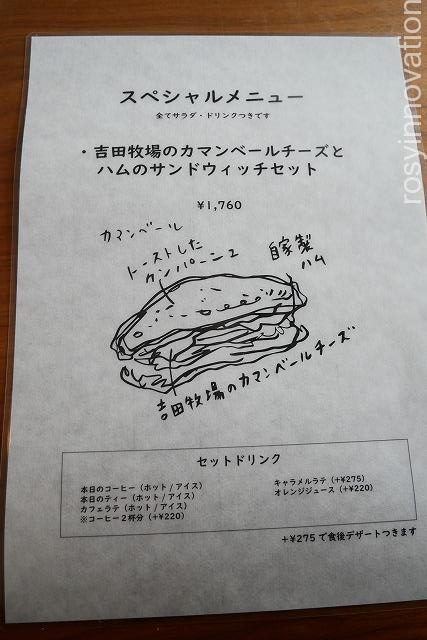 スペシャルメニュー
全てサラダ・ドリンクつきです
・吉田牧場のカマンベールチーズと
ハムのサンドウィッチセット
¥1,760
カマンベール
トーストした
カンパーニュ
自家製
ハム
吉田牧場のカマンベールチーズ
セットドリンク
本日のコーヒー（ホット/アイス）
本日のティー（ホット/アイス）
カフェラテ（ホット/アイス）
※コーヒー2杯分（+¥220）
キャラメルラテ（+¥275）
オレンジジュース（+¥220）
+¥275で食後デザートつきます
rosyinnovation